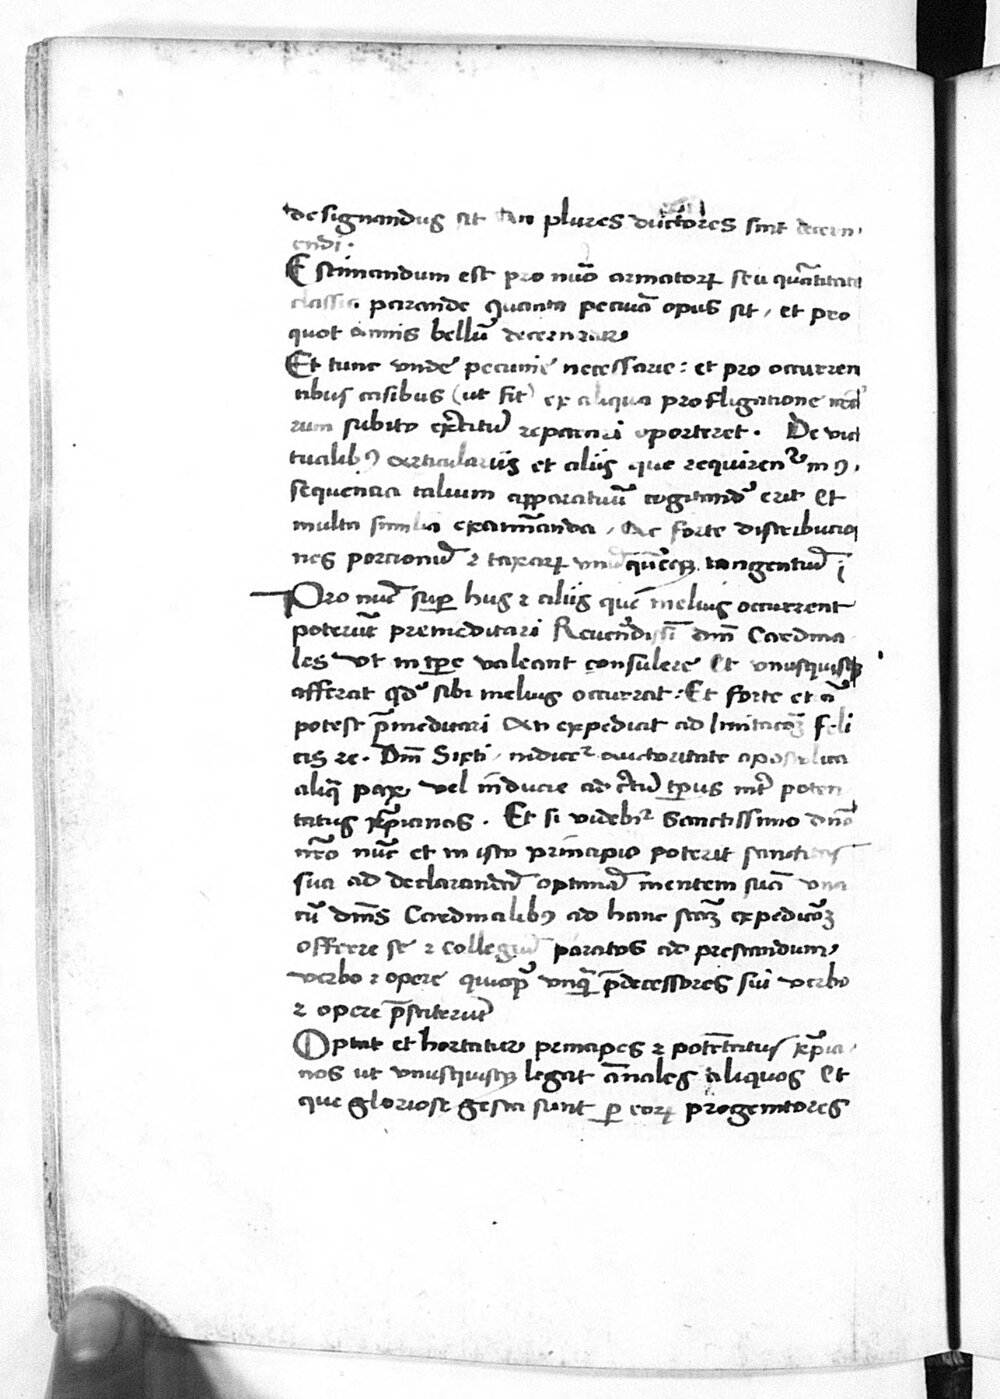 designandus sit an plures ductores sint decern
endi.
Estimandum est pro nũo armatorꝝ seu quãtitate
classis parande quanta pecuã opus sit, et pro
quot annis bellũ decernatur
Et tunc unde pecunie necessarie: et pro occurren
tibus casibus (ut fit) ex aliqua profligatione
rum subito exercitũ reparari oporteret. De vic
tualibꝫ articulariis et aliis que requirent᷑ in
sequencia talium apparatuũ cogitandũ erit Et
multa similia examinanda, Ac forte distribucio
nes porcionũ ⁊ taxarꝝ tangentiũ
Pro nũc suꝑ hijs ⁊ aliis que melius occurrent
poterũt premeditari Reuerẽdissĩ dnĩ Cardina
les ut in tꝑe valeant consulere Et unusquisqꝫ
afferat qd̃ sibi melius occurrat: Et forte et iã
potest p̃meditari An expediat ad imitacõꝫ feli
cis re. Dñi Sixti, indicer᷑ auctoritate apostolica
aliq̃ pax vel inducie ad c̃tũ tp̃us int̃ poten
tatus xp̃ianos. Et si videbit᷑ Sanctissimo dño
nr̃o nũc et in isto principio poterit sanctitas
sua ad declarandã optimã mentem suã una
cũ dñis Cardinalibꝫ ad hanc sctãꝫ expedicõꝫ
offerre se ⁊ collegiũ paratos ad prestandum
verbo ⁊ opere quicq̃ unq̃ p̃decessores sui verbo
⁊ opere p̃stiterũt
Optat et hortatur principes ⁊ potẽtatus xp̃ia
nos ut unusquisqꝫ legat ãnales aliquos Et
que gloriose gesta sunt ꝑ eorꝝ progenitores